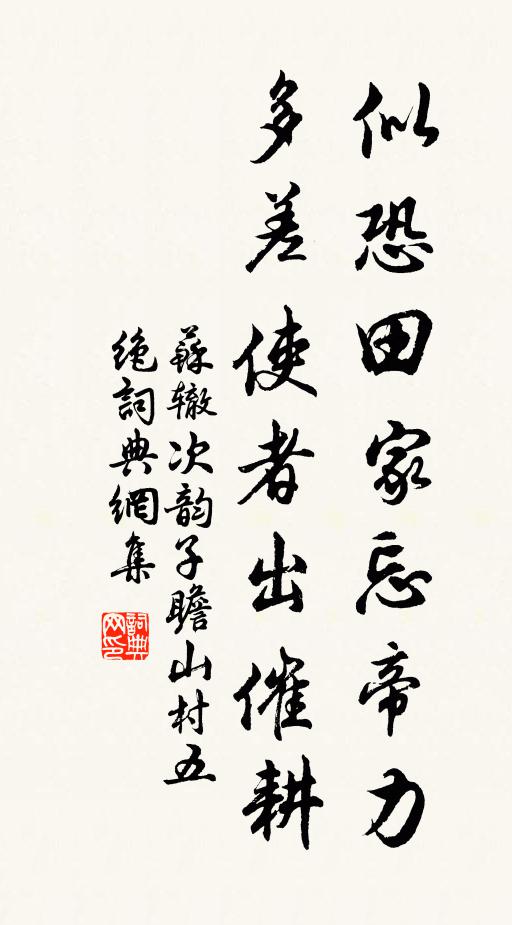 似恐田家忘帝力
多差使者出催耕
蘇辙次韵子瞻山村五
绝詞典網集
詞典
网印